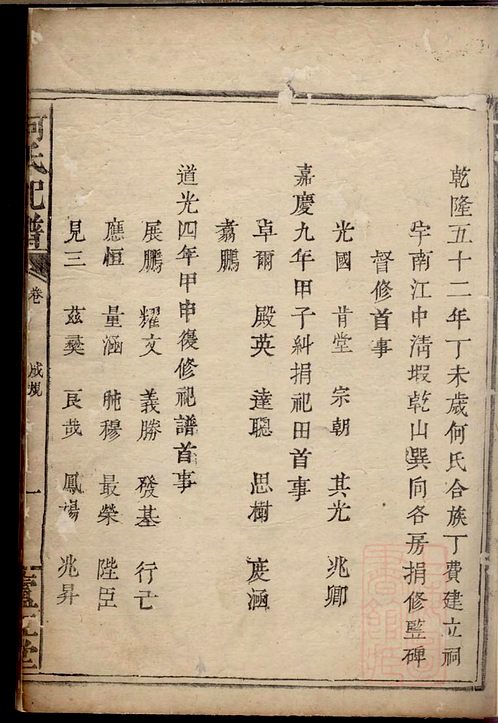 乾隆五十二年丁未歲何氏合族丁費建立祠
宇南江中淸塅乾山巽向各房捐修監碑
督修首事
光國 肯堂 宗朝 其光 兆卿
嘉慶九年甲子糾捐祀田首事
卓爾 殿英 達聰 思樹 度涵
翥鵬
道光四年甲申復修祀譜首事
展鵬 耀文 義勝 發基 行亡
應恒 量涵 肫穆 最榮 陛臣
見三 茲樊 良哉 鳳場 兆昇
何氏祀譜
卷
一